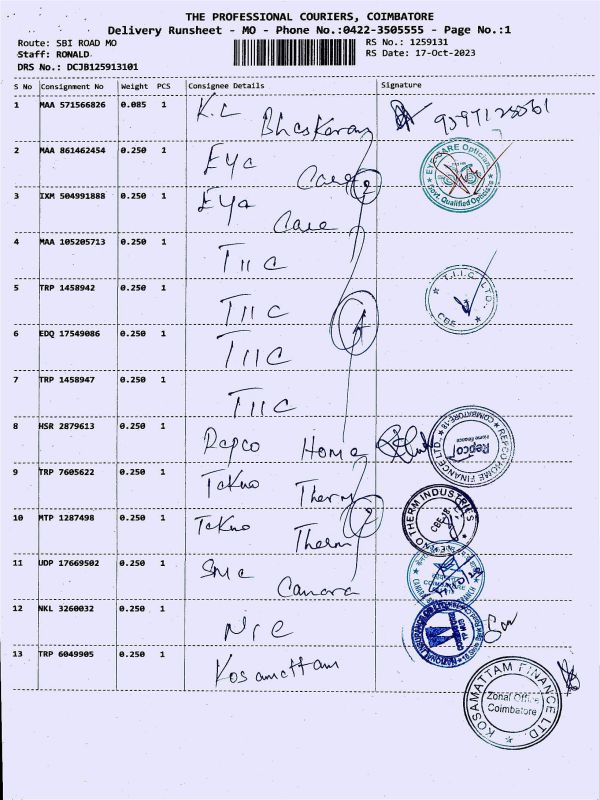 THE PROFESSIONAL COURIERS, COIMBATORE
Delivery Runsheet - MO - Phone No.:0422-3505555 - Page No.:1
Route: SBI ROAD MO
RS No.: 1259131
Staff: RONALD
RS Date: 17-Oct-2023
DRS No.: DCJB125913101
S No Consignment No Weight PCS Consignee Details Signature
1 MAA 571566826 0.085 1 K.L Bhaskaran
2 MAA 861462454 0.250 1 Eye Care
EYE CARE Opticians
Govt. Qualified Opticians
3 IXM 504991888 0.250 1 Eye Care
4 MAA 105205713 0.250 1 TIIC
5 TRP 1458942 0.250 1 TIIC
T.I.I.C. LTD.,
CBE
6 EDQ 17549086 0.250 1 TIIC
7 TRP 1458947 0.250 1 TIIC
8 HSR 2879613 0.250 1 Repco Home
REPCO HOME FINANCE LTD.,
COIMBATORE-18
Repco
Home Finance
9 TRP 7605622 0.250 1 Tekno Therm
10 MTP 1287498 0.250 1 Tekno Therm
TEKNO THERM INDUSTRIES
CBE-18
11 UDP 17669502 0.250 1 SME Canara
12 NKL 3260032 0.250 1 NIC
13 TRP 6049905 0.250 1 Kosamattam
KOSAMATTAM FINANCE LTD.
Zonal Office
Coimbatore